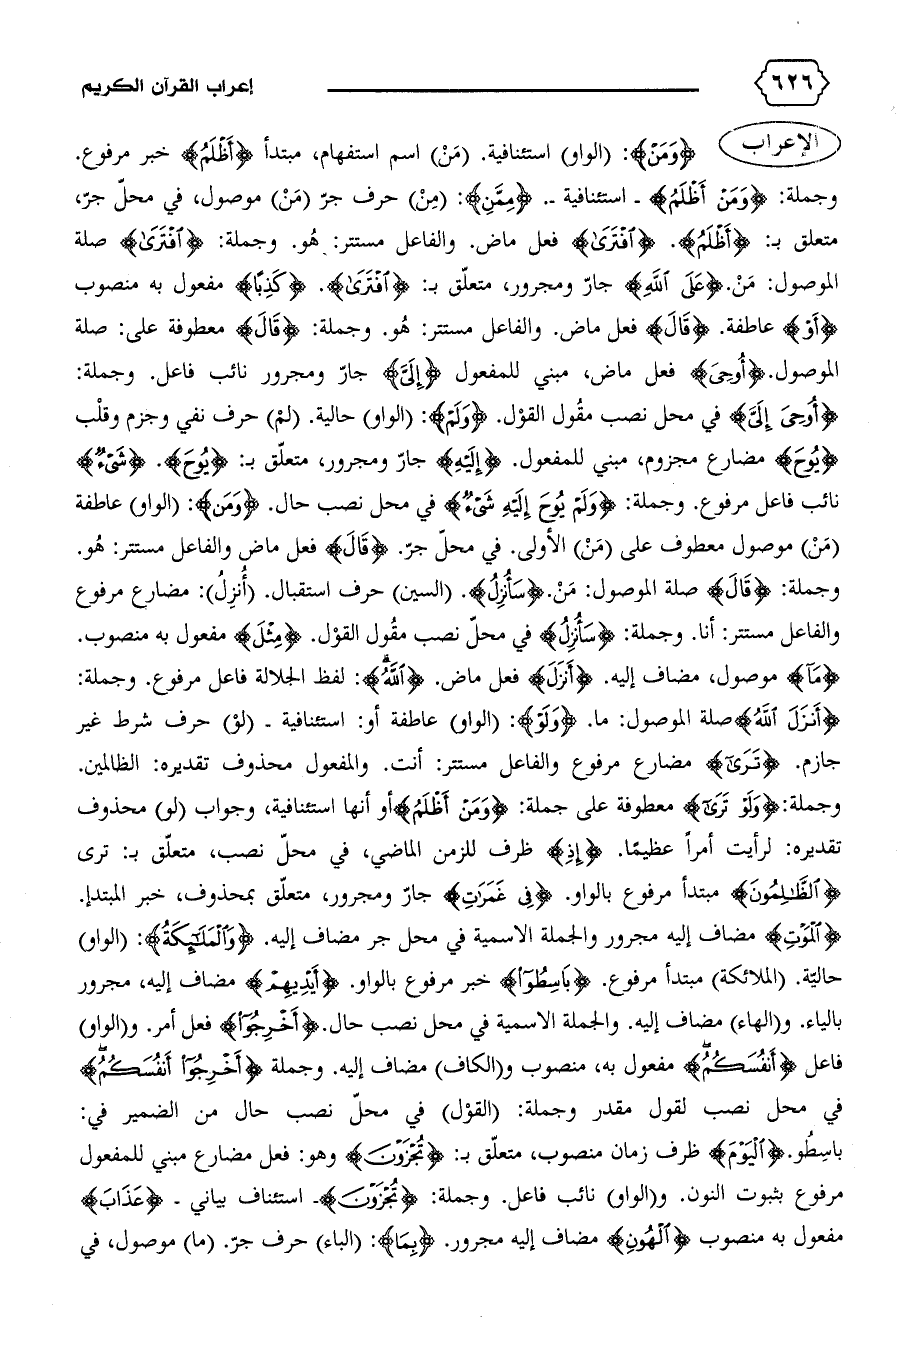 ٦٢٦ إعراب القرآن الكريم
الإعراب ﴿وَمَنْ﴾: (الواو) استئنافية. (مَنْ) اسم استفهام، مبتدأ ﴿أَظْلَمُ﴾ خبر مرفوع.
وجملة: ﴿وَمَنْ أَظْلَمُ﴾ ـ استئنافية ـ. ﴿مِمَّنِ﴾: (مِنْ) حرف جرّ (مَنْ) موصول، في محلّ جرّ،
متعلق بـ: ﴿أَظْلَمُ﴾. ﴿ٱفْتَرَىٰ﴾ فعل ماض. والفاعل مستتر: هُو. وجملة: ﴿ٱفْتَرَىٰ﴾ صلة
الموصول: مَنْ. ﴿عَلَى ٱللَّهِ﴾ جارّ ومجرور، متعلّق بـ: ﴿ٱفْتَرَىٰ﴾. ﴿كَذِبًا﴾ مفعول به منصوب
﴿أَوْ﴾ عاطفة. ﴿قَالَ﴾ فعل ماض. والفاعل مستتر: هُو. وجملة: ﴿قَالَ﴾ معطوفة على: صلة
الموصول. ﴿أُوحِىَ﴾ فعل ماض، مبني للمفعول ﴿إِلَىَّ﴾ جارّ ومجرور نائب فاعل. وجملة:
﴿أُوحِىَ إِلَىَّ﴾ في محل نصب مقُول القوْل. ﴿وَلَمْ﴾: (الواو) حالية. (لمْ) حرف نفي وجزم وقلْب
﴿يُوحَ﴾ مضارع مجزوم، مبني للمفعول. ﴿إِلَيْهِ﴾ جارّ ومجرور، متعلّق بـ: ﴿يُوحَ﴾. ﴿شَىْءٌ﴾
نائب فاعل مرفوع. وجملة: ﴿وَلَمْ يُوحَ إِلَيْهِ شَىْءٌ﴾ في محل نصب حال. ﴿وَمَن﴾: (الواو) عاطفة
(مَنْ) موصول معطوف على (مَنْ) الأولى. في محلّ جرّ. ﴿قَالَ﴾ فعل ماض والفاعل مستتر: هُو.
وجملة: ﴿قَالَ﴾ صلة الموصول: مَنْ. ﴿سَأُنزِلُ﴾. (السين) حرف استقبال. (أُنزِلُ): مضارع مرفوع
والفاعل مستتر: أنا. وجملة: ﴿سَأُنزِلُ﴾ في محلّ نصب مقُول القوْل. ﴿مِثْلَ﴾ مفعول به منصوب.
﴿مَآ﴾ موصول، مضاف إليه. ﴿أَنزَلَ﴾ فعل ماض. ﴿ٱللَّهُ﴾: لفظ الجلالة فاعل مرفوع. وجملة:
﴿أَنزَلَ ٱللَّهُ﴾ صلة الموصول: ما. ﴿وَلَوْ﴾: (الواو) عاطفة أو: استئنافية ـ (لوْ) حرف شرط غير
جازم. ﴿تَرَىٰٓ﴾ مضارع مرفوع والفاعل مستتر: أنت. والمفعول محذوف تقديره: الظالمين.
وجملة: ﴿وَلَوْ تَرَىٰٓ﴾ معطوفة على جملة: ﴿وَمَنْ أَظْلَمُ﴾ أو أنها استئنافية، وجواب (لو) محذوف
تقديره: لرأيت أمراً عظيمًا. ﴿إِذِ﴾ ظرف للزمن الماضي، في محلّ نصب، متعلّق بـ: ترى
﴿ٱلظَّٰلِمُونَ﴾ مبتدأ مرفوع بالواو. ﴿فِى غَمَرَٰتِ﴾ جارّ ومجرور، متعلّق بمحذوف، خبر المبتدإ.
﴿ٱلْمَوْتِ﴾ مضاف إليه مجرور والجملة الاسمية في محل جر مضاف إليه. ﴿وَٱلْمَلَٰٓئِكَةُ﴾: (الواو)
حاليّة. (الملائكة) مبتدأ مرفوع. ﴿بَاسِطُوٓا۟﴾ خبر مرفوع بالواو. ﴿أَيْدِيهِمْ﴾ مضاف إليه، مجرور
بالياء. و(الهاء) مضاف إليه. والجملة الاسمية في محل نصب حال. ﴿أَخْرِجُوٓا۟﴾ فعل أمر. و(الواو)
فاعل ﴿أَنفُسَكُمُ ۖ﴾ مفعول به، منصوب و(الكاف) مضاف إليه. وجملة ﴿أَخْرِجُوٓا۟ أَنفُسَكُمُ ۖ﴾
في محل نصب لقول مقدر وجملة: (القوْل) في محلّ نصب حال من الضمير في:
باسِطُو. ﴿ٱلْيَوْمَ﴾ ظرف زمان منصوب، متعلّق بـ: ﴿تُجْزَوْنَ﴾ وهو: فعل مضارع مبني للمفعول
مرفوع بثبوت النون. و(الواو) نائب فاعل. وجملة: ﴿تُجْزَوْنَ﴾ـ استئناف بياني ـ ﴿عَذَابَ﴾
مفعول به منصوب ﴿ٱلْهُونِ﴾ مضاف إليه مجرور. ﴿بِمَا﴾: (الباء) حرف جرّ. (ما) موصول، في